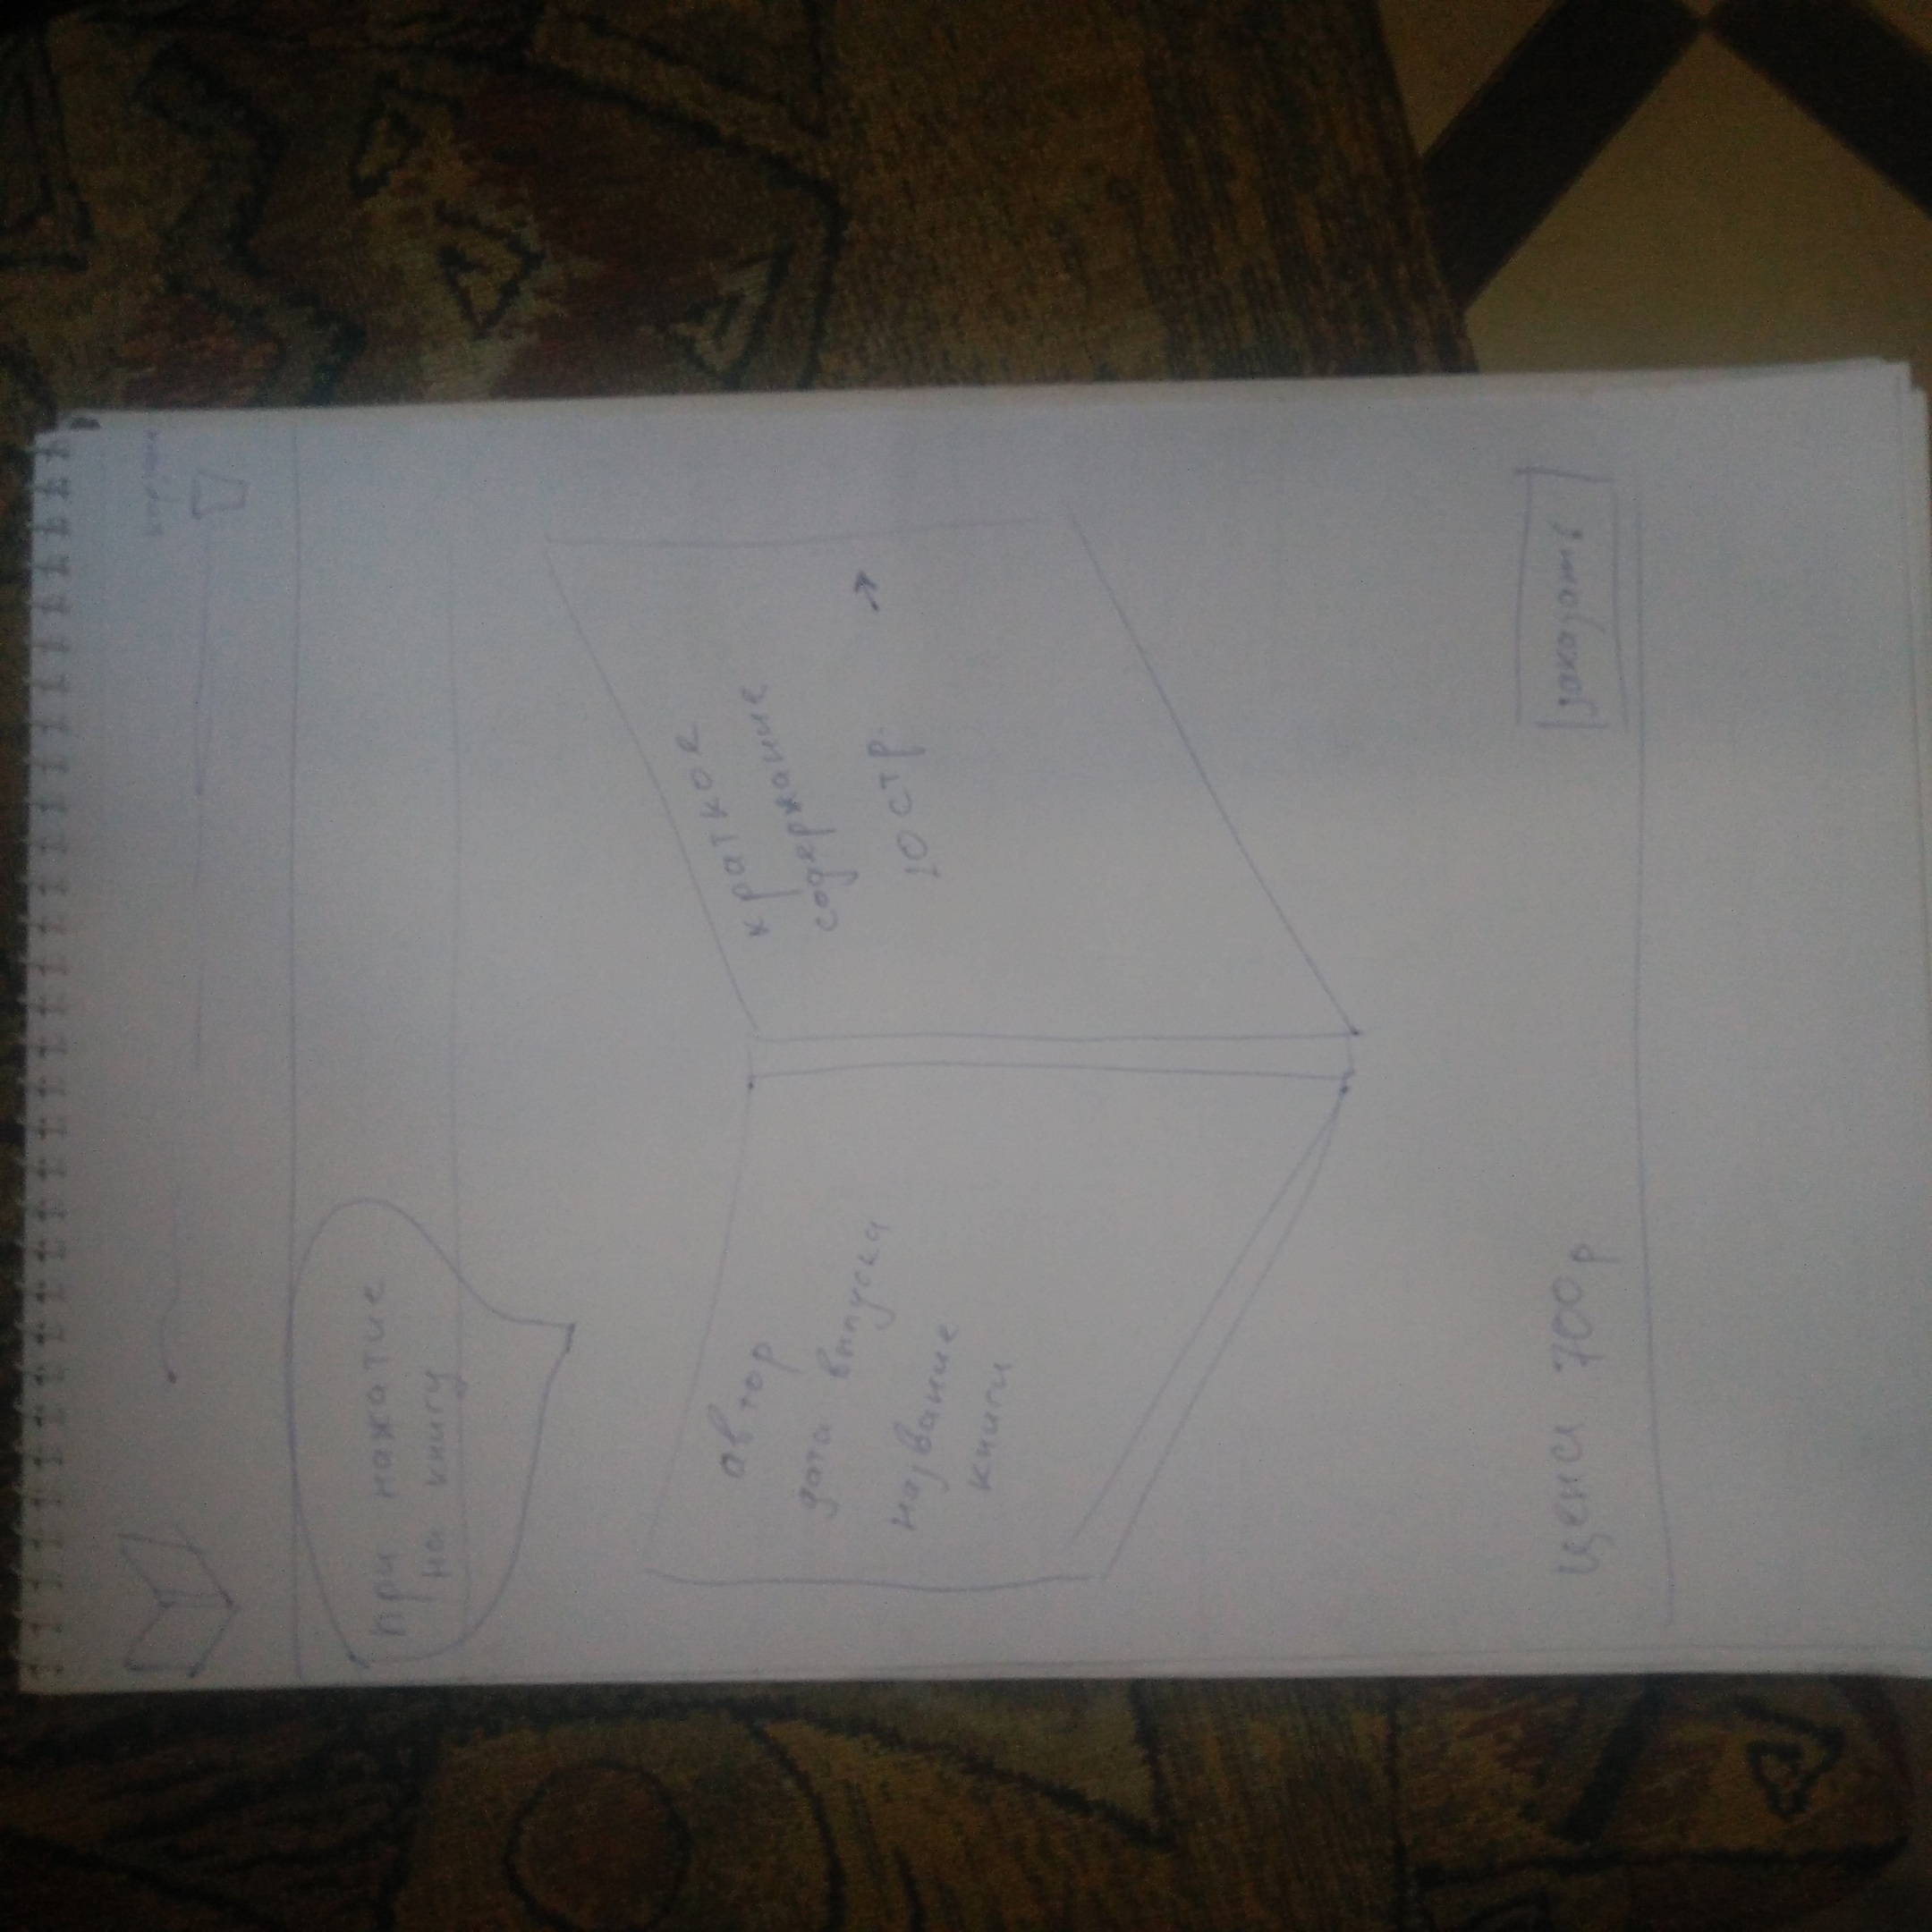 корзина
при нажатие
на книгу
автор
дата выпуска
название
книги
краткое
содержание
10 стр.
цена 700р
заказать